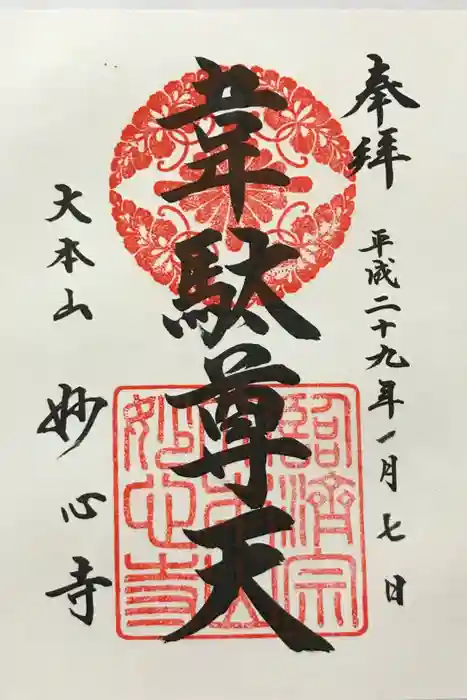 奉拝
平成二十九年一月七日
韋駄尊天
大本山
妙心寺
臨済宗
大本山
妙心寺